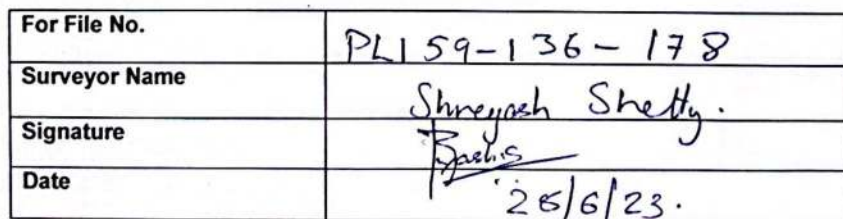 For File No. PL159-136-178
Surveyor Name Shreyash Shetty.
Signature
Date /6/23.